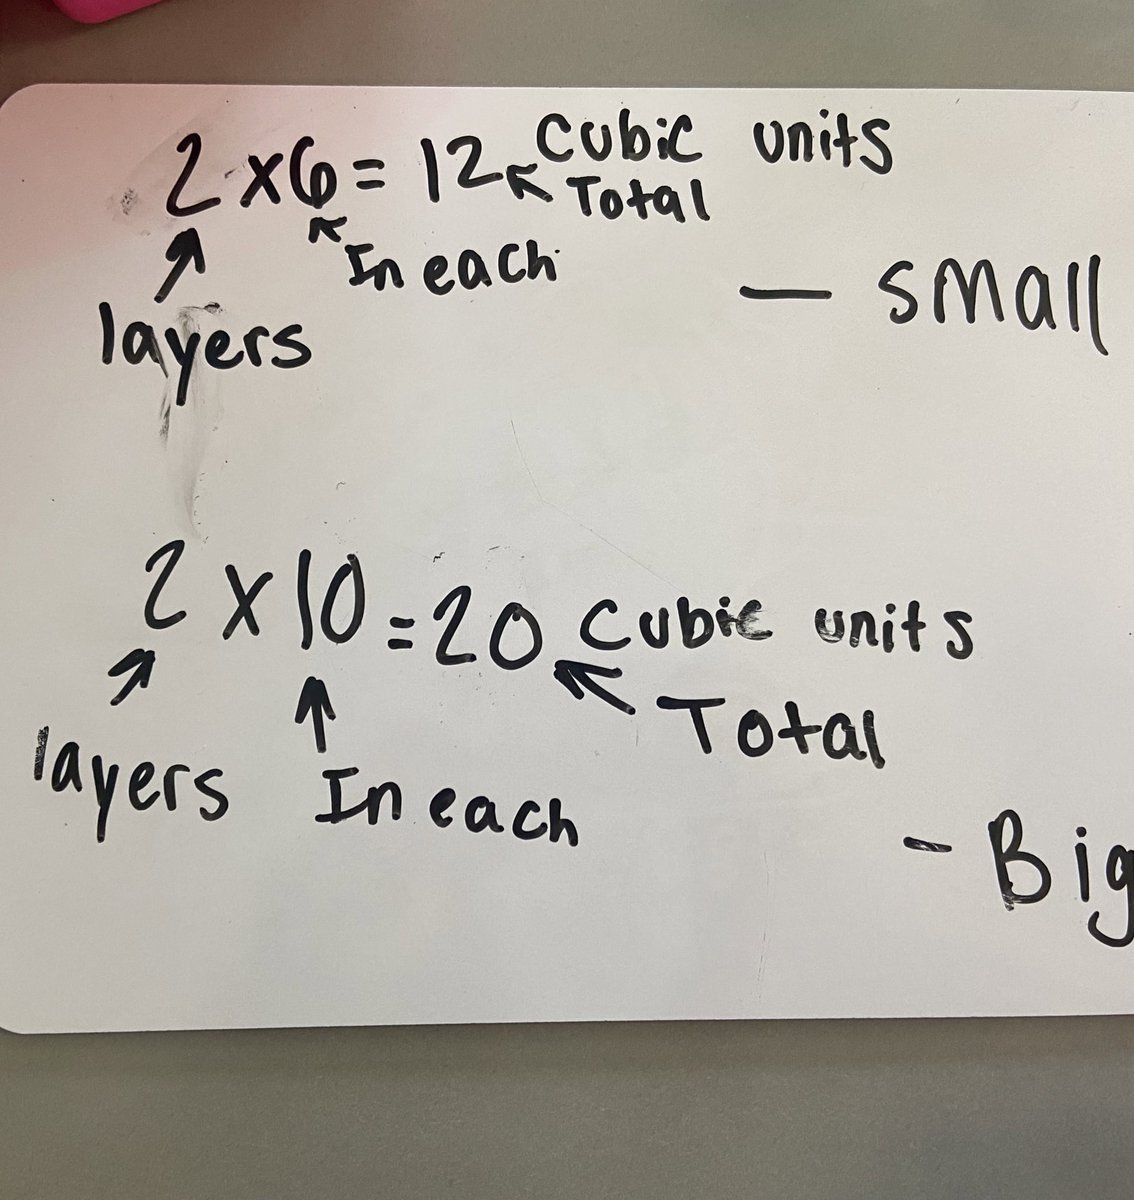 2 x 6 = 12 Cubic units
Total
In each
layers
— Small
2 x 10 = 20 Cubic units
Total
layers In each
- Big